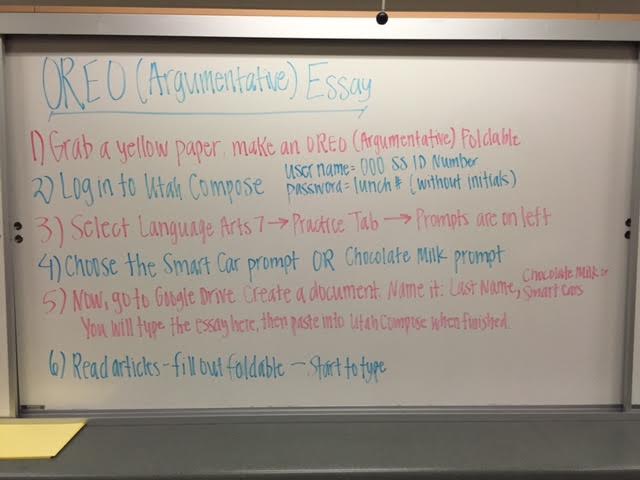 OREO (Argumentative) Essay
1) Grab a yellow paper, make an OREO (Argumentative) Foldable
2) Log in to Utah Compose
username = 000 SS ID Number
password = lunch # (without initials)
3) Select Language Arts 7 → Practice Tab → Prompts are on left
4) Choose the Smart Car prompt OR Chocolate Milk prompt
5) Now, go to Google Drive. Create a document. Name it: Last Name, Chocolate Milk or
Smart Cars
You will type the essay here, then paste into Utah Compose when finished.
6) Read articles - fill out foldable — Start to type